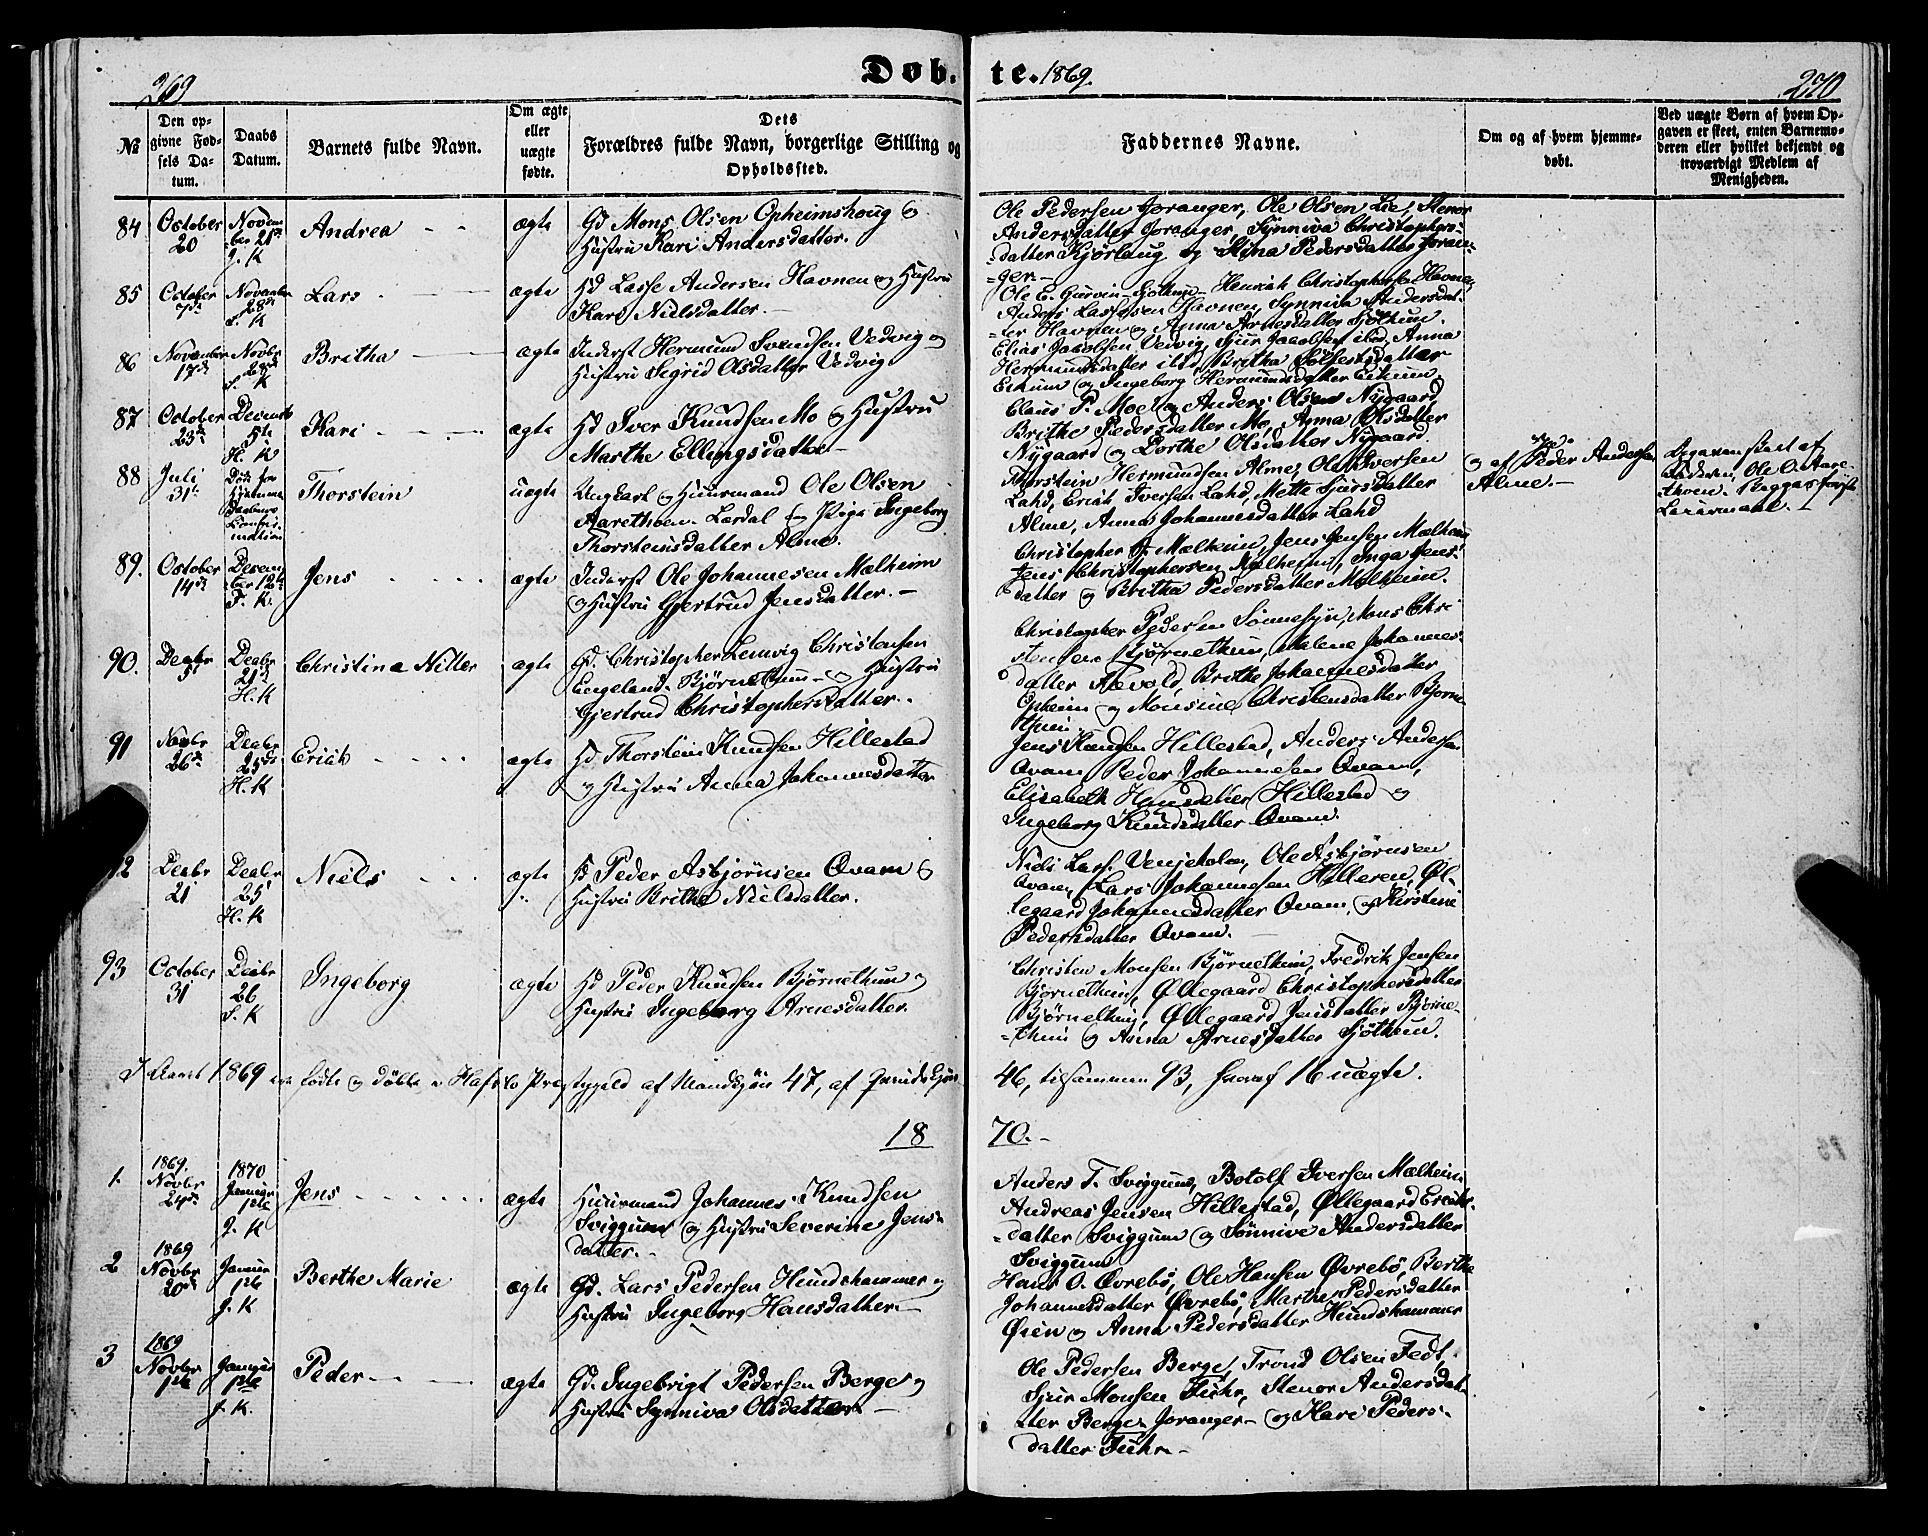 269
Døb-
te. 1869.
270
№
Den op-
givne Fød-
sels Da-
tum.
Daabs
Datum.
Barnets fulde Navn.
Om ægte
eller
uægte
fødte.
Dets
Forældres fulde Navn, borgerlige Stilling og
Opholdssted.
Faddernes Navne.
Om og af hvem hjemme-
døbt.
Ved uægte Børn af hvem Op-
gaven er skeet, enten Barnemo-
deren eller hvilket bekjendt og
troværdigt Medlem af
Menigheden.
84 October 20 Novem-
ber 21de
J. K
Andrea
ægte
Gd Mons Olsen Opheimshoug og
Hustru Kari Andersdatter.
Ole Pedersen Joranger, Ole Olsen Lie, Stenor
Andersdatter Joranger, Synniva Christophers-
datter Kjørlaug og Stina Pedersdatter Joran-
ger
85 October November
28de
S. K
Lars
ægte
Hd Lasse Andersen Havnen og Hustru
Kari Nielsdatter.
Ole E. Gurvin Sjøthun Henrich Christophersen Havnen
Anders Lassesen Havnen, Synniva Andersdat-
ter Havnen og Anna Arnesdatter Sjøthun.
86 November 17de Novbr 28de
S. K
Britha
ægte
Inderst Hermund Svendsen Vedvig og
Hustru Sigrid Olsdatter Vedvig
Elias Jacobsen Vedvig, Sjur Jacobsen ibid, Anna
Hermundsdatter ibid, Britha Solfestsdatter
Eikum og Ingeborg Hermundsdatter Eikum.
87 October 23de Decemb 5te
H. K
Kari
ægte
Hd Iver Knudsen Mo og Hustru
Marthe Ellingsdatter
Claus P. Moe og Anders Olsen Nygaard,
Brithe Pedersdatter Mo, Anna Olsdatter
Nygaard og Dorthe Olsdatter Nygaard.
88 Juli 31te Død før
Thorstein
uægte
Ungkarl og Huusmand Ole Olsen
Aarethoen Lærdal og Pige Ingeborg
Thorsteinsdatter Alme.
Thorstein Hermundsen Alme, Ole Iversen
Lahd, Erick Iversen Lahd, Mette Sjursdatter
Alme, Anna Johannesdatter Lahd
Ja.
og af Peder Andersen
Alme
Opgaven skeet af
Faderen, Ole O. Aare-
thoen. Begges første
Leiermaal.
89. October 14de Decem-
ber 12te
F. K.
Jens
ægte
Inderst Ole Johannesen Mælheim
og Hustru Gjertrud Jensdatter.
Christopher J. Mælheim, Jens Jensen Mælheim
Jens Christophersen Mælheim, Inga Jens-
datter og Britha Pedersdatter Mælheim.
90. Decbr 5te Decbr 25de
H. K
Christina Niller
ægte
Gd. Christopher Lemvig Christensen
Engeland. Bjørnethun og Hustru
Gjertrud Christophersdatter.
Christopher Pedersen Sønnesyn, Mons Chri-
stensen Bjørnethun, Malene Johannes-
datter Hevold, Brithe Johannesdatter
Opheim og Monsine Christensdatter Bjørne-
thun
91 Novbr 26de Decbr 25de
H. K
Erick
ægte
Hd Thorstein Knudsen Hillestad
og Hustru Anna Johannesdatter
Jens Knudsen Hillestad, Anders Andersen
Qvam, Peder Johannesen Qvam,
Elisabeth Hansdatter Hillestad og
Ingeborg Knudsdatter Qvam.
92 Decbr 21 Decbr 25
H. K
Niels
ægte
Hd Peder Asbjørnsen Qvam og
Hustru Britha Nielsdatter.
Niels Lass. Venjeholen, Ole Asbjørnsen
Qvam, Lars Johannesen Hilleren, Øl-
legaard Johannesdatter Qvam, og Kirstine
Pedersdatter Qvam.
93 October 31 Decbr 26
S. K
Ingeborg
ægte
Hd Peder Knudsen Bjørnethun og
Hustru Ingeborg Arnesdatter
Christen Monsen Bjørnethun, Fredrik Jensen
Bjørnethun, Øllegaard Christophersdatter
Bjørnethun, Øllegaard Jensdatter Bjørne-
thun og Anna Arnesdatter Sjøthun.
I Aaret 1869 ere fødte og døbte i Hafslo Præstegjeld af Mandkjøn 47, af Qvindekjøn
46, tilsammen 93, hvoraf 16 uægte.
18
70.
1. 1869. Novbr 24de 1870 Januar 1ste
J. K
Jens
ægte
Huusmand Johannes Knudsen
Sviggum og Hustru Severine Jens-
datter.
Anders T. Sviggum, Botolf Iversen Mælheim
Andreas Jensen Hillestad, Øllegaard Ericks-
datter Sviggum og Sønnive Andersdatter
Sviggum
2 1869 Novbr 20de Januar 1ste
J. K
Berthe Marie
ægte
Gd. Lars Pedersen Hundshammer og
Hustru Ingeborg Hansdatter
Hans O. Øvrebø, Ole Hansen Øvrebø, Berthe
Johannesdatter Øvrebø, Marthe Pedersdatter
Øien og Anna Pedersdatter Hundshammer
3 1869 Novbr 1ste Januar 1ste
J. K.
Peder
ægte
Gd. Ingebrigt Pedersen Berge og
Hustru Synniva Olsdatter
Ole Pedersen Berge, Trond Olsen Fedt,
Sjur Monsen Fuhr, Stenor Andersdat-
ter Berge Joranger og Kari Peders-
datter Fuhr